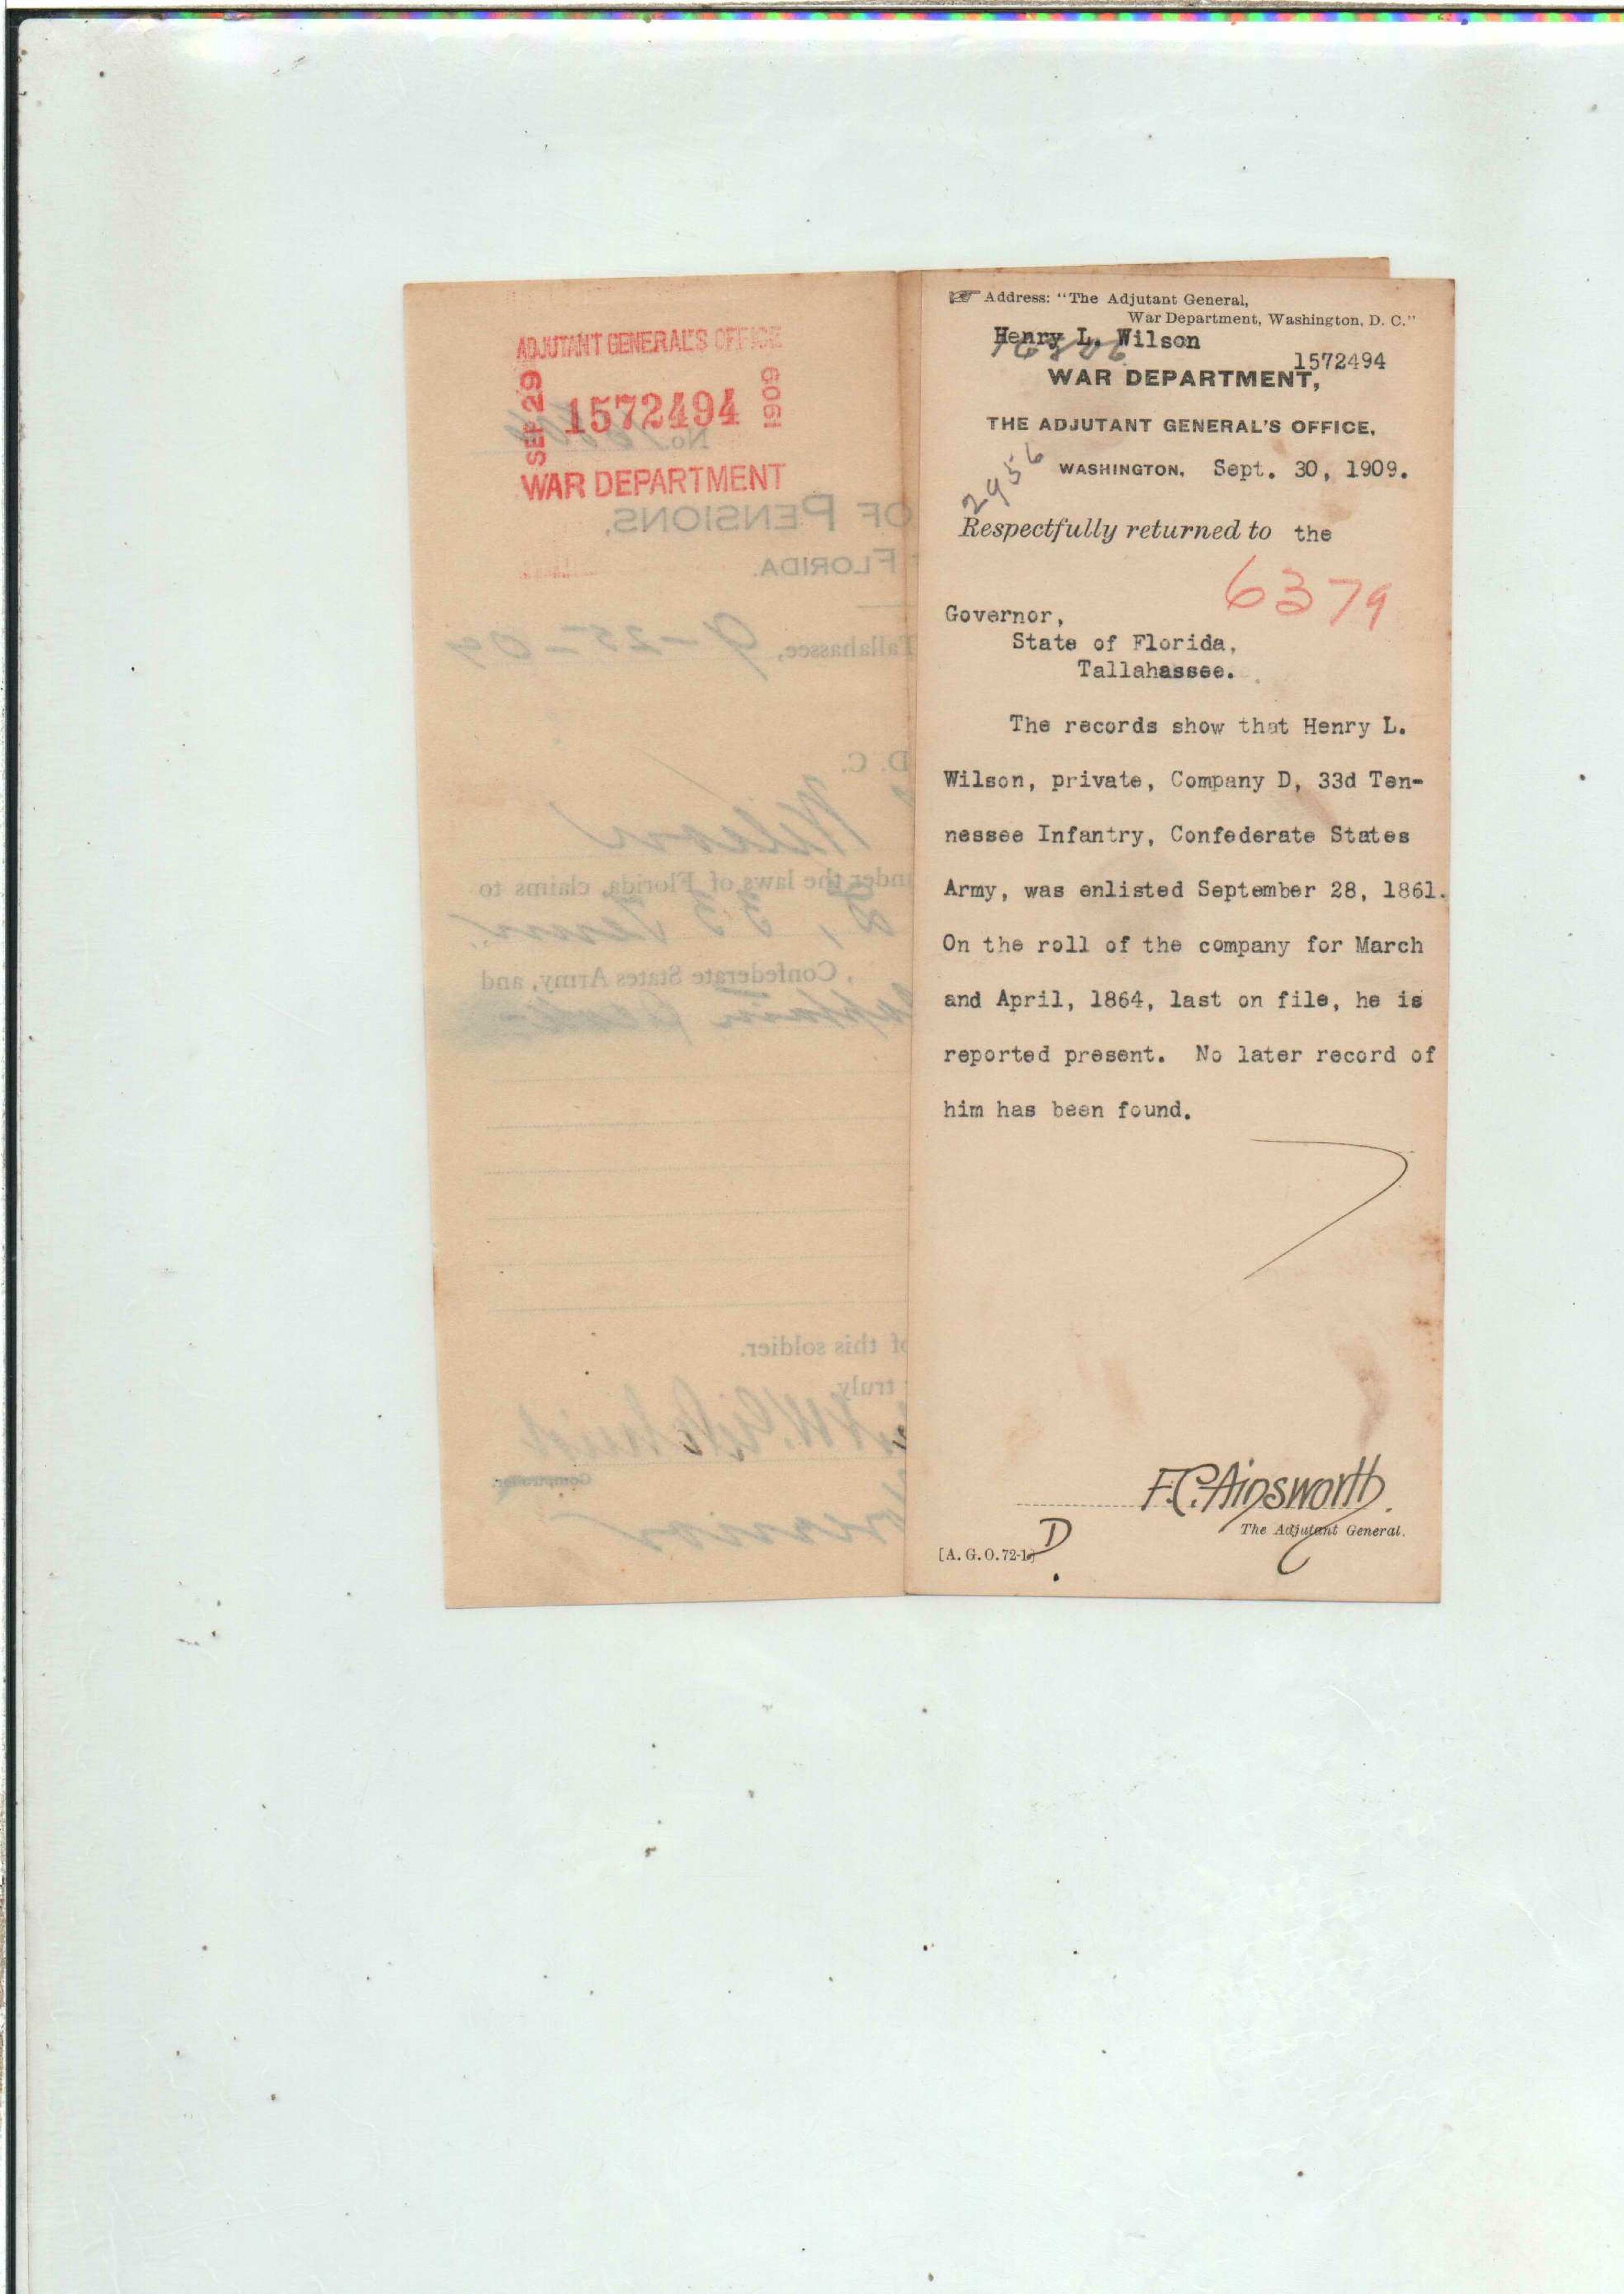 ADJUTANT GENERAL'S OFFICE
SEP 29 1572494 1909
WAR DEPARTMENT
No.
OF PENSIONS.
FLORIDA.
Tallahassee, 9-25-09
D. C.
Wilson
under the laws of Florida, claims to
D, 33 Tenn.
, Confederate States Army, and
of this soldier.
truly
Comptroller.
Governor
Address: "The Adjutant General,
War Department, Washington, D. C."
Henry L. Wilson
1572494
WAR DEPARTMENT,
THE ADJUTANT GENERAL'S OFFICE,
2956
WASHINGTON, Sept. 30, 1909.
Respectfully returned to the
6379
Governor,
State of Florida,
Tallahassee.
The records show that Henry L.
Wilson, private, Company D, 33d Ten-
nessee Infantry, Confederate States
Army, was enlisted September 28, 1861.
On the roll of the company for March
and April, 1864, last on file, he is
reported present. No later record of
him has been found.
F.C. Ainsworth.
The Adjutant General.
D
[A. G. O. 72-1.]